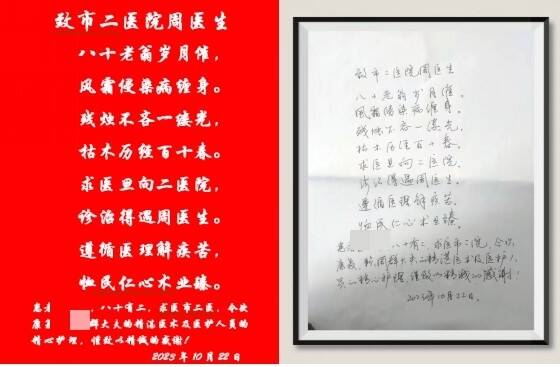 致市二医院周医生
八十老翁岁月催，
风霜侵染病缠身。
残烛不吝一缕光，
枯木历经百十春。
求医旦向二医院，
诊治得遇周医生。
遵循医理解疾苦，
恤民仁心术业臻。
患者 ，八十有二，求医市二医，今次
康复 群大夫的精湛医术及医护人员的
精心护理，谨致以精诚的感谢！
2023 年 10 月 22 日
致市二医院周医生
八十老翁岁月催，
风霜侵染病缠身。
残烛不吝一缕光，
枯木历经百十春。
求医旦向二医院，
诊治得遇周医生。
遵循医理解疾苦，
恤民仁心术业臻。
患 八十有二，求医市二院，今次
康复，赖周群大夫的精湛医术及医护人
员的精心护理，谨致以精诚的感谢！
2023年10月22日。